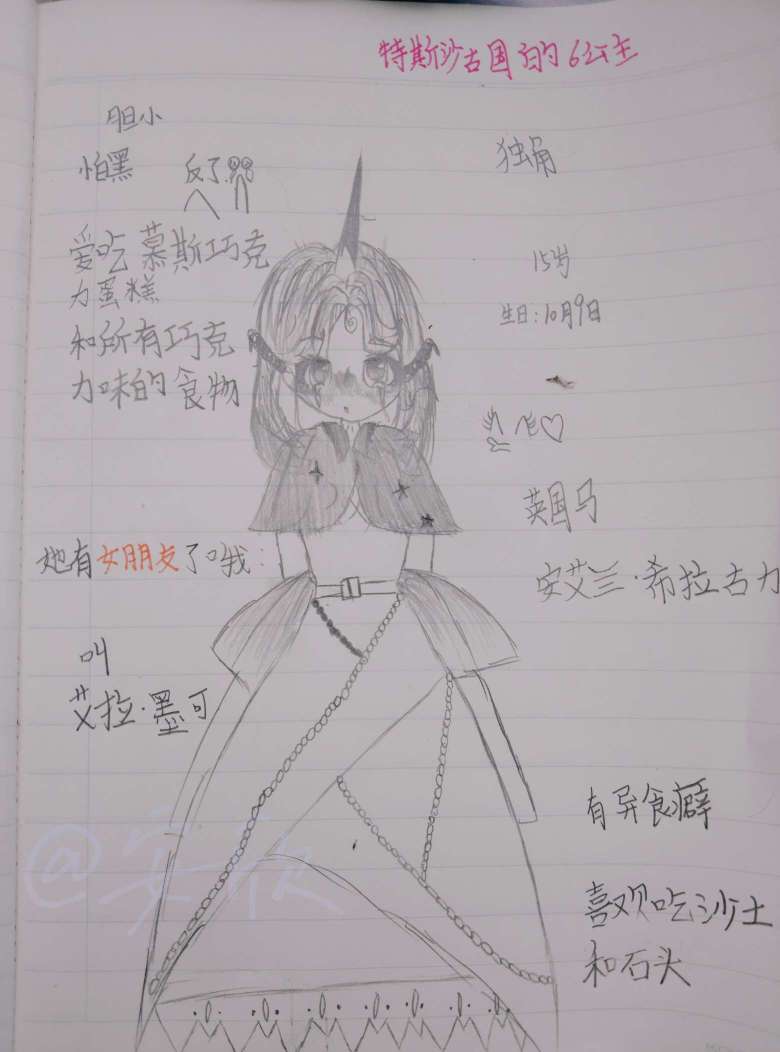 特斯沙古国的6公主
胆小
怕黑
反了
爱吃慕斯巧克
力蛋糕
和所有巧克
力味的食物
她有女朋友了哦:
叫
艾拉·墨可
独角
15岁
生日:10月9日
飞♡
英国马
安艾兰·希拉古力
有异食癖
喜欢吃沙土
和石头